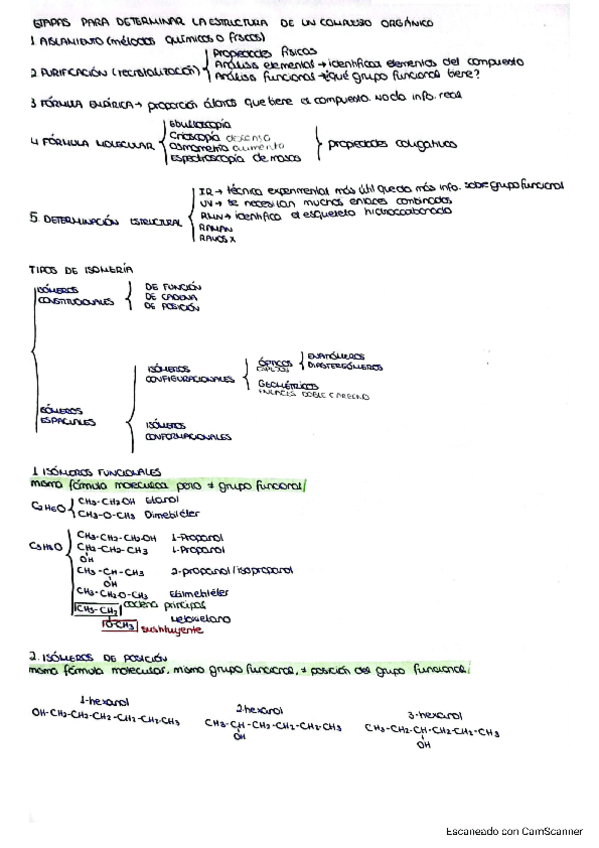 ETAPAS PARA DETERMINAR LA ESTRUCTURA DE UN COMPUESTO ORGÁNICO
1 AISLAMIENTO (métodos químicos o físicos)
Propiedades físicos
Análisis elemental → identificar elementos del compuesto
2 PURIFICACIÓN (recristalización)
Análisis funcional → ¿qué grupo funcional tiene?
3 FÓRMULA EMPÍRICA → proporción átomos que tiene el compuesto. No da info. real
Ebulloscopía
Crioscopía descenso
4 FÓRMULA MOLECULAR
Osmometría aumento
propiedades coligativas
Espectroscopía de masas
IR → técnica experimental más útil que da más info. sobre grupo funcional
UV → se necesitan muchos enlaces combinados
5 DETERMINACIÓN ESTRUCTURAL
RMN → identifica el esqueleto hidrocarbonado
RAMAN
RAYOS X
TIPOS DE ISOMERÍA
ISÓMEROS CONSTITUCIONALES
DE FUNCIÓN
DE CADENA
DE POSICIÓN
ISÓMEROS ESPACIALES
ISÓMEROS CONFIGURACIONALES
ÓPTICOS
ENANTIÓMEROS
DIASTEREÓMEROS
GEOMÉTRICOS
ENLACES DOBLE
ISÓMEROS CONFORMACIONALES
1 ISÓMEROS FUNCIONALES
misma fórmula molecular pero ≠ grupo funcional
C2H6O
CH3-CH2OH Etanol
CH3-O-CH3 Dimetiléter
C3H8O
CH3-CH2-CH2OH 1-Propanol
CH2-CH2-CH3 1-Propanol
OH
CH3-CH-CH3 2-propanol/isopropanol
OH
CH3-CH2O-CH3 Etilmetiléter
CH3-CH2 cadena principal
Metoxietano
O-CH3 sustituyente
2. ISÓMEROS DE POSICIÓN
misma fórmula molecular, mismo grupo funcional, ≠ posición del grupo funcional
1-hexanol
2-hexanol
3-hexanol
OH-CH2-CH2-CH2-CH2-CH2-CH3
CH3-CH-CH2-CH2-CH2-CH3
CH3-CH2-CH-CH2-CH2-CH3
OH
OH
Escaneado con CamScanner